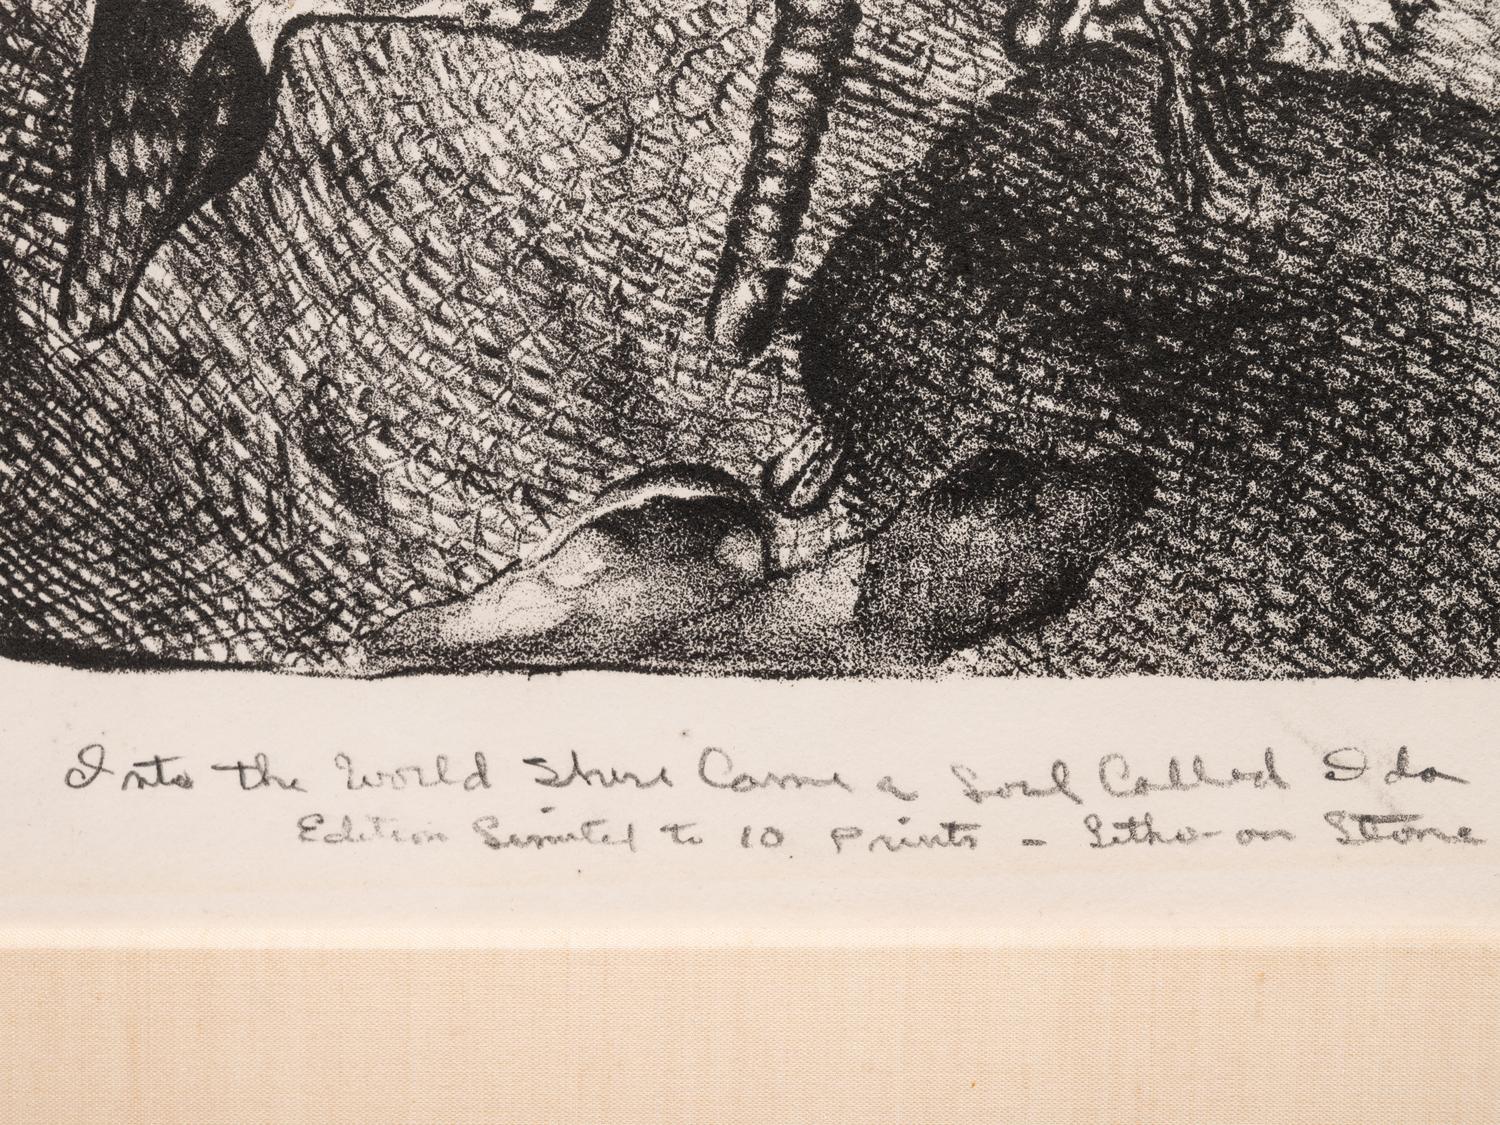 Into the World There Came a Soul Called Ida
Edition Limited to 10 Prints - Litho-on Stone